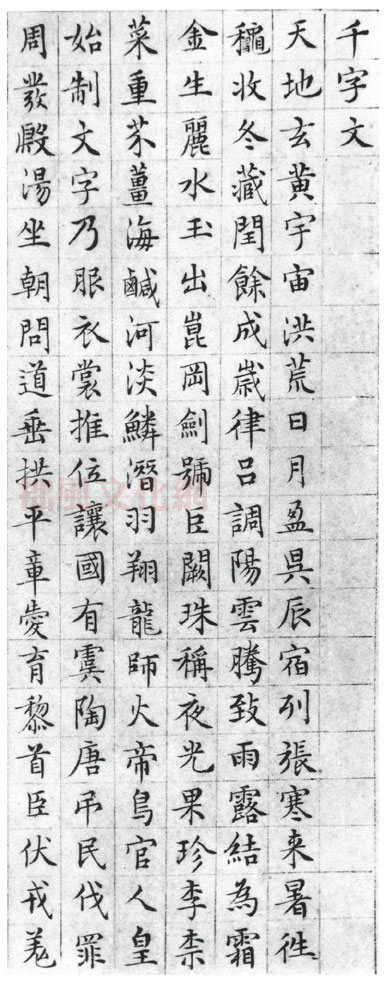 千字文
天地玄黃宇宙洪荒日月盈昃辰宿列張寒来暑往
龝收冬藏閏餘成歲律呂調陽雲騰致雨露結為霜
金生麗水玉出崑岡劍號巨闕珠稱夜光果珍李柰
菜重芥薑海鹹河淡鱗潛羽翔龍師火帝鳥官人皇
始制文字乃服衣裳推位讓國有虞陶唐弔民伐罪
周發殷湯坐朝問道垂拱平章愛育黎首臣伏戎羌